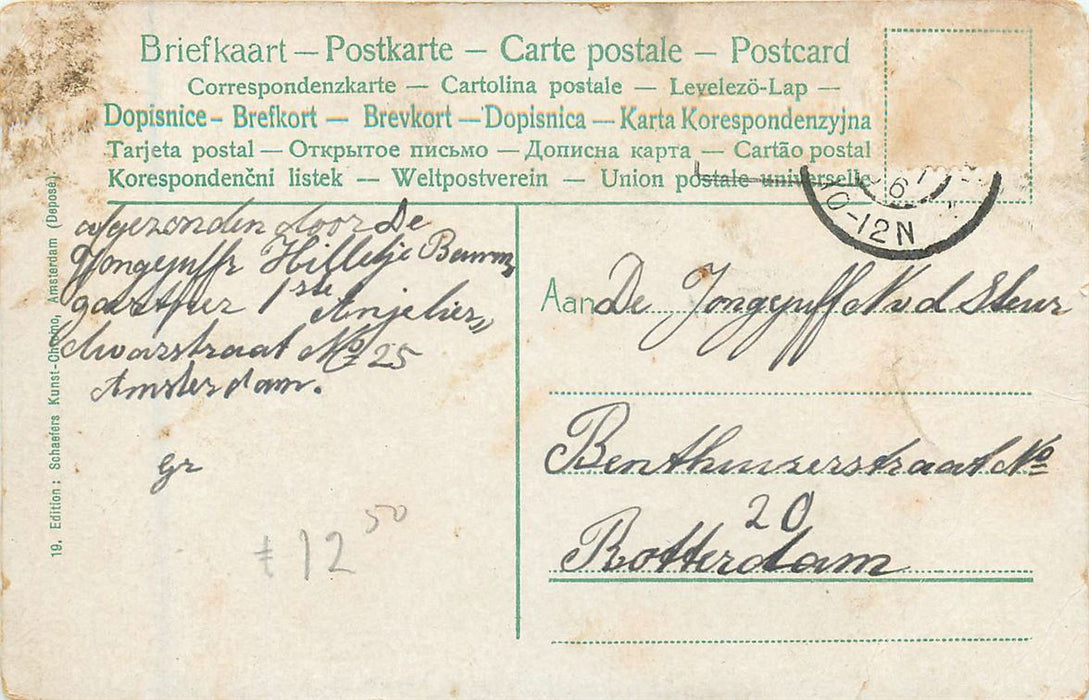 Briefkaart — Postkarte — Carte postale — Postcard
Correspondenzkarte — Cartolina postale — Levelezö-Lap —
Dopisnice – Brefkort — Brevkort — Dopisnica — Karta Korespondenzyjna
Tarjeta postal — Открытое письмо — Дописна карта — Cartão postal
Korespondenčni listek — Weltpostverein — Union postale universelle
6
10-12N
afgezonden door De
Jongejuffr Hilletje
gaertner 1ste Anjeliers„
dwarstraat No 25
Amsterdam.
gr
12 50
Aan De Jongejuff N v d Steur
Benthuizerstraat No
20
Rotterdam
19. Edition: Schaefers Kunst-Chromo, Amsterdam (Deposé).